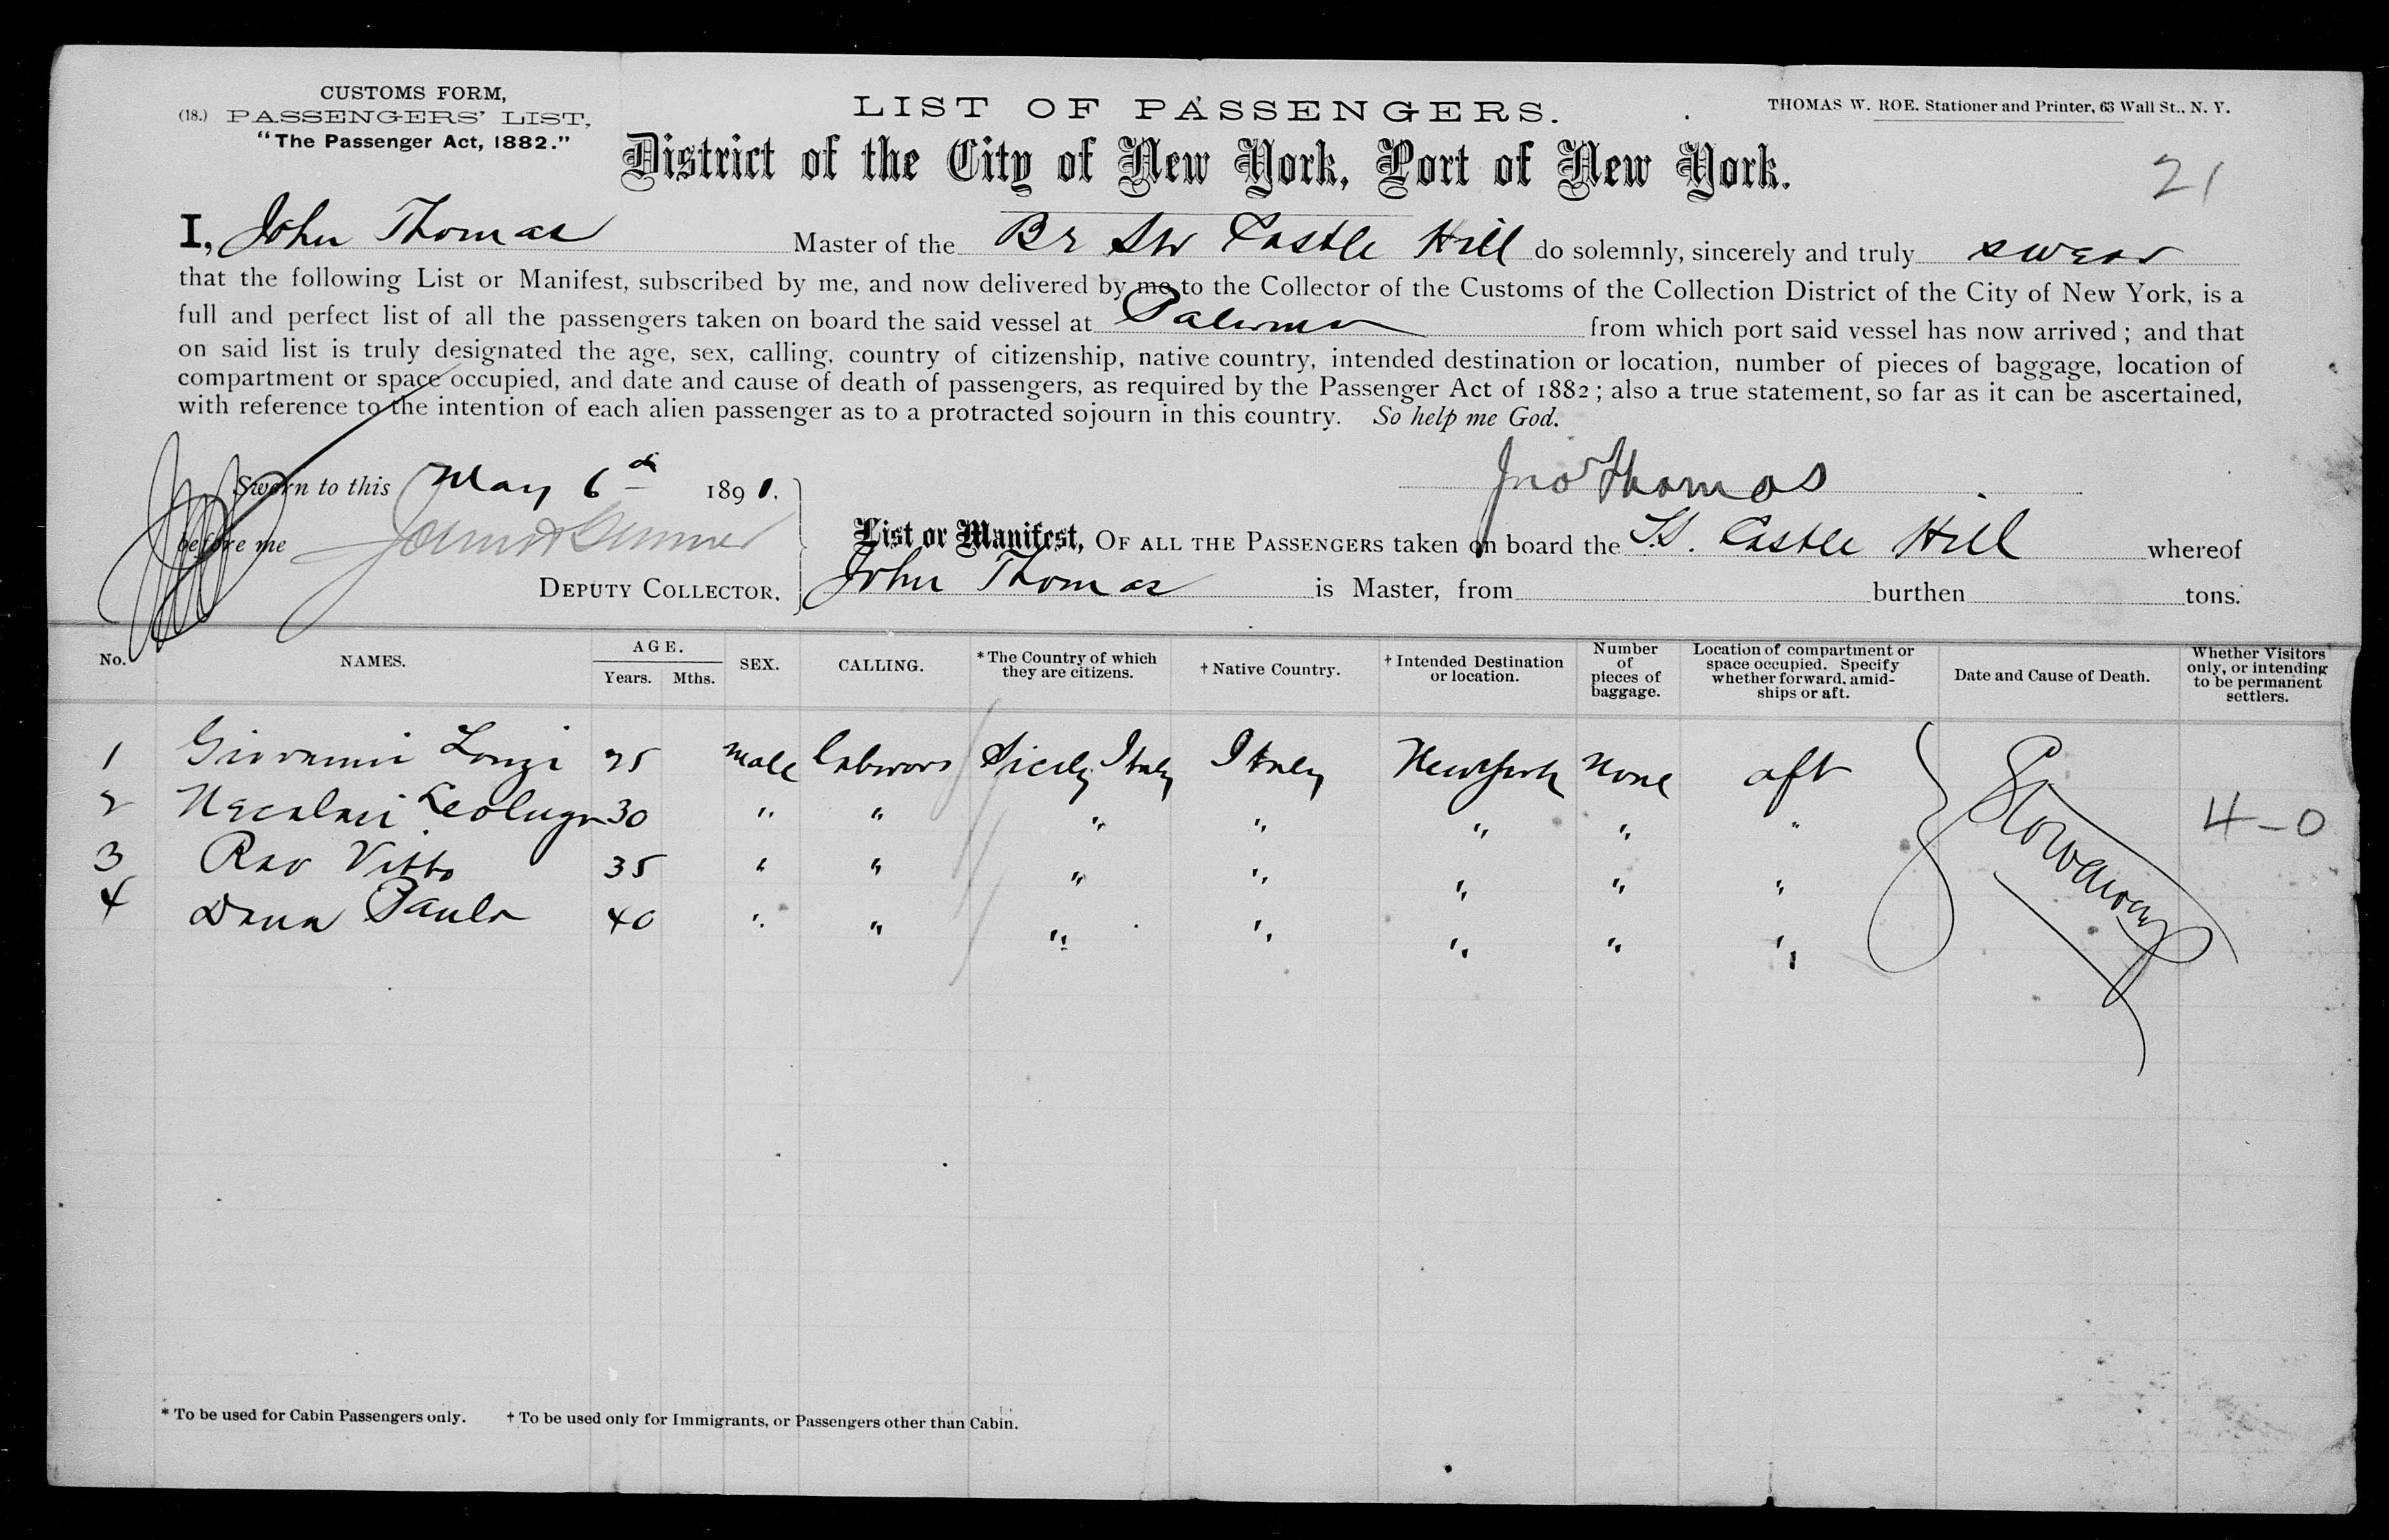 CUSTOMS FORM,
(18.) PASSENGERS' LIST,
"The Passenger Act, 1882."
LIST OF PASSENGERS.
THOMAS W. ROE. Stationer and Printer, 63 Wall St., N. Y.
District of the City of New York, Port of New York.
21
I, John Thomas Master of the Br Str Castle Hill do solemnly, sincerely and truly swear
that the following List or Manifest, subscribed by me, and now delivered by me to the Collector of the Customs of the Collection District of the City of New York, is a
full and perfect list of all the passengers taken on board the said vessel at Palermo from which port said vessel has now arrived; and that
on said list is truly designated the age, sex, calling, country of citizenship, native country, intended destination or location, number of pieces of baggage, location of
compartment or space occupied, and date and cause of death of passengers, as required by the Passenger Act of 1882; also a true statement, so far as it can be ascertained,
with reference to the intention of each alien passenger as to a protracted sojourn in this country. So help me God.
Sworn to this May 6th 1891.
Jno Thomas
before me
DEPUTY COLLECTOR.
List or Manifest, OF ALL THE PASSENGERS taken on board the S.S. Castle Hill whereof
John Thomas is Master, from burthen tons.
No. NAMES. AGE. Years. Mths. SEX. CALLING. * The Country of which they are citizens. † Native Country. † Intended Destination or location. Number of pieces of baggage. Location of compartment or space occupied. Specify whether forward, amidships or aft. Date and Cause of Death. Whether Visitors only, or intending to be permanent settlers.
1 Giovanni Lonzi 25 male labourer Sicily Italy Italy New York None aft
2 30 " " " " " " "
3 Rao Vitto 35 " " " " " " "
4 Dana Paulo 40 " " " " " " "
Stowaways
4-0
* To be used for Cabin Passengers only. † To be used only for Immigrants, or Passengers other than Cabin.